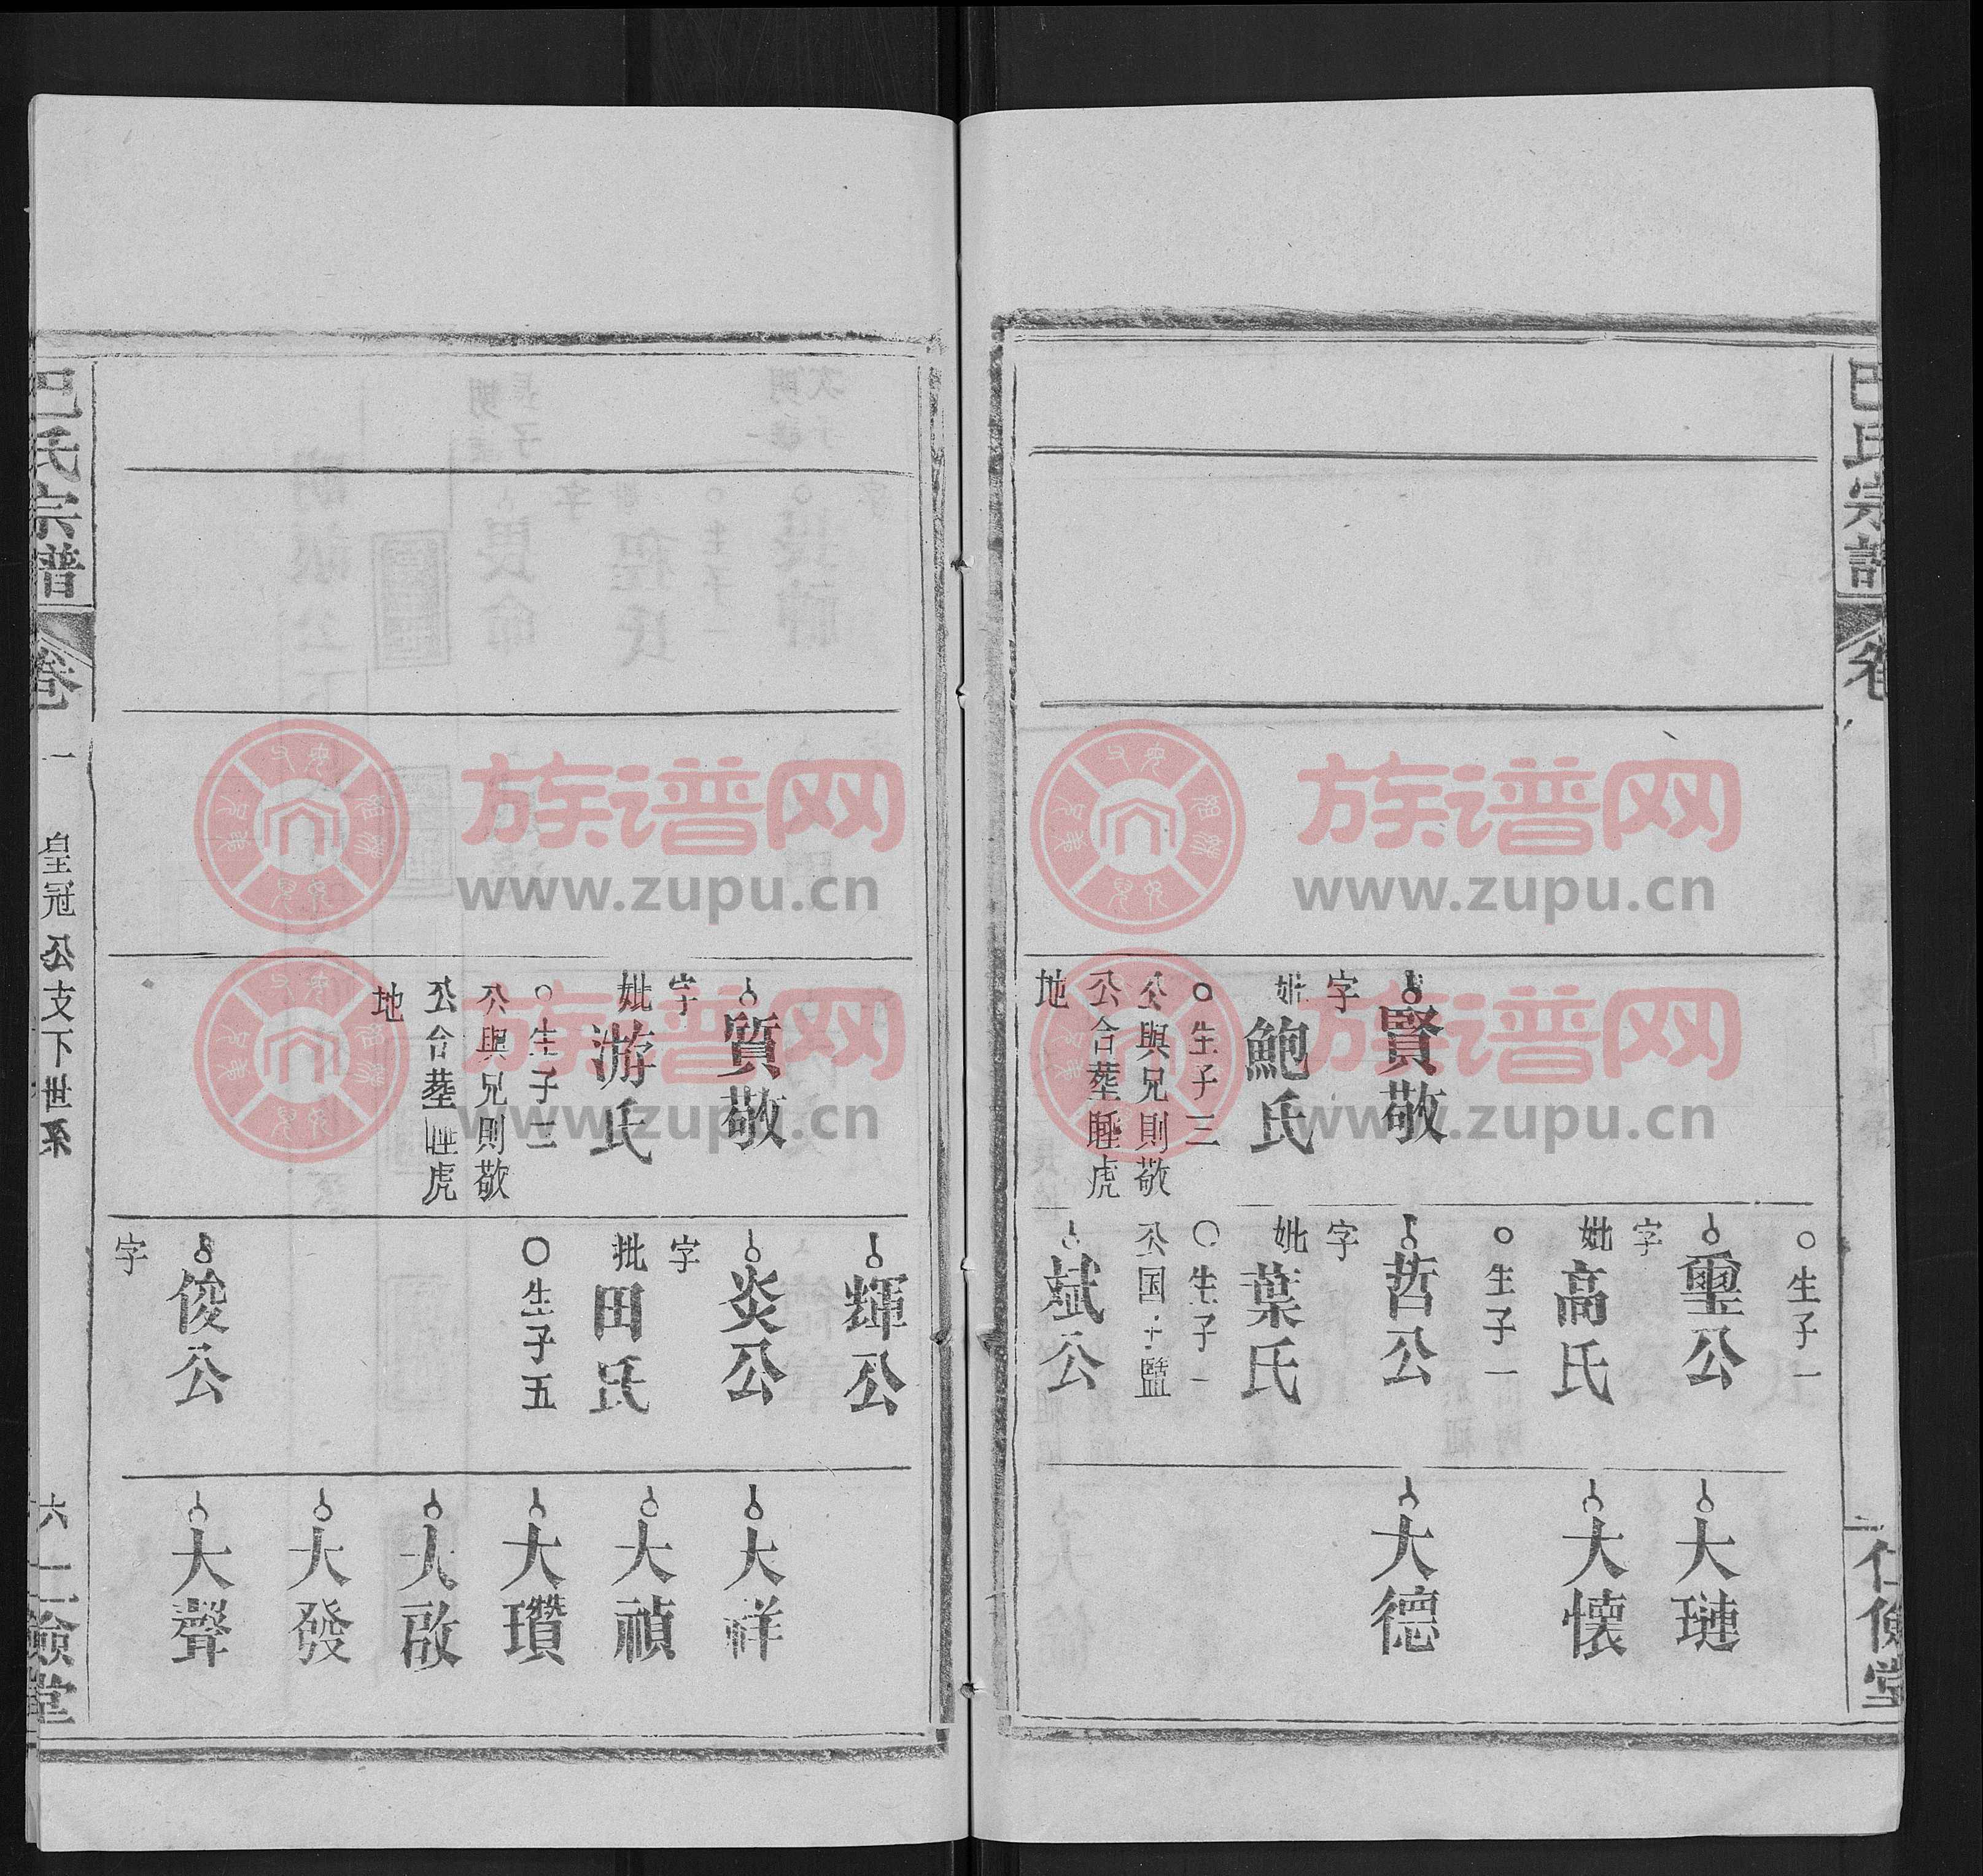 巴氏宗譜
卷
仁儉堂
賢敬
字
妣鮑氏
○生子三
公與兄則敬
公合塟睡虎
地
○生子一
璽公
字
妣高氏
○生子一
哲公
字
妣葉氏
○生子一
公国子監
斌公
大璉
大懷
大德
質敬
字
妣游氏
○生子三
公與兄則敬
公合塟睡虎
地
輝公
炎公
字
妣田氏
○生子五
俊公
字
大祥
大禎
大瓚
大啟
大發
大聲
巴氏宗譜
卷一
皇冠公支下世系
六
儉堂
族谱网
www.zupu.cn
族谱网
www.zupu.cn
族谱网
www.zupu.cn
族谱网
www.zupu.cn